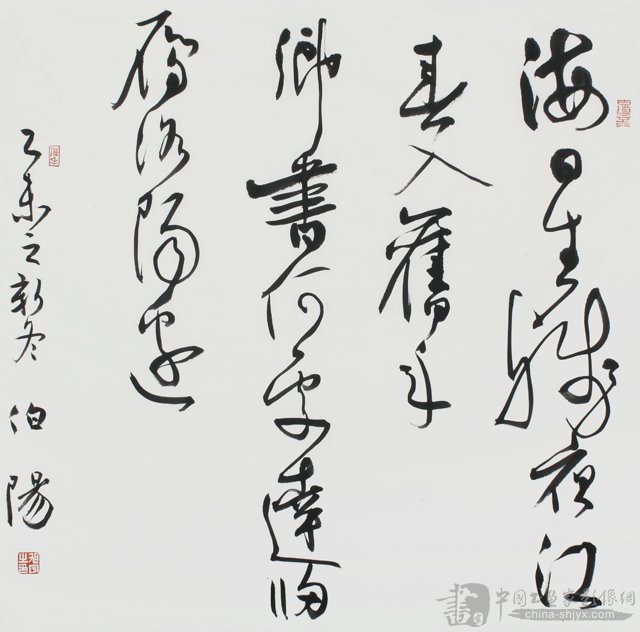 海日生殘夜江
春入舊年
鄉書何處達歸
雁洛陽邊
乙未之新冬 伯陽
china-shjyx.com